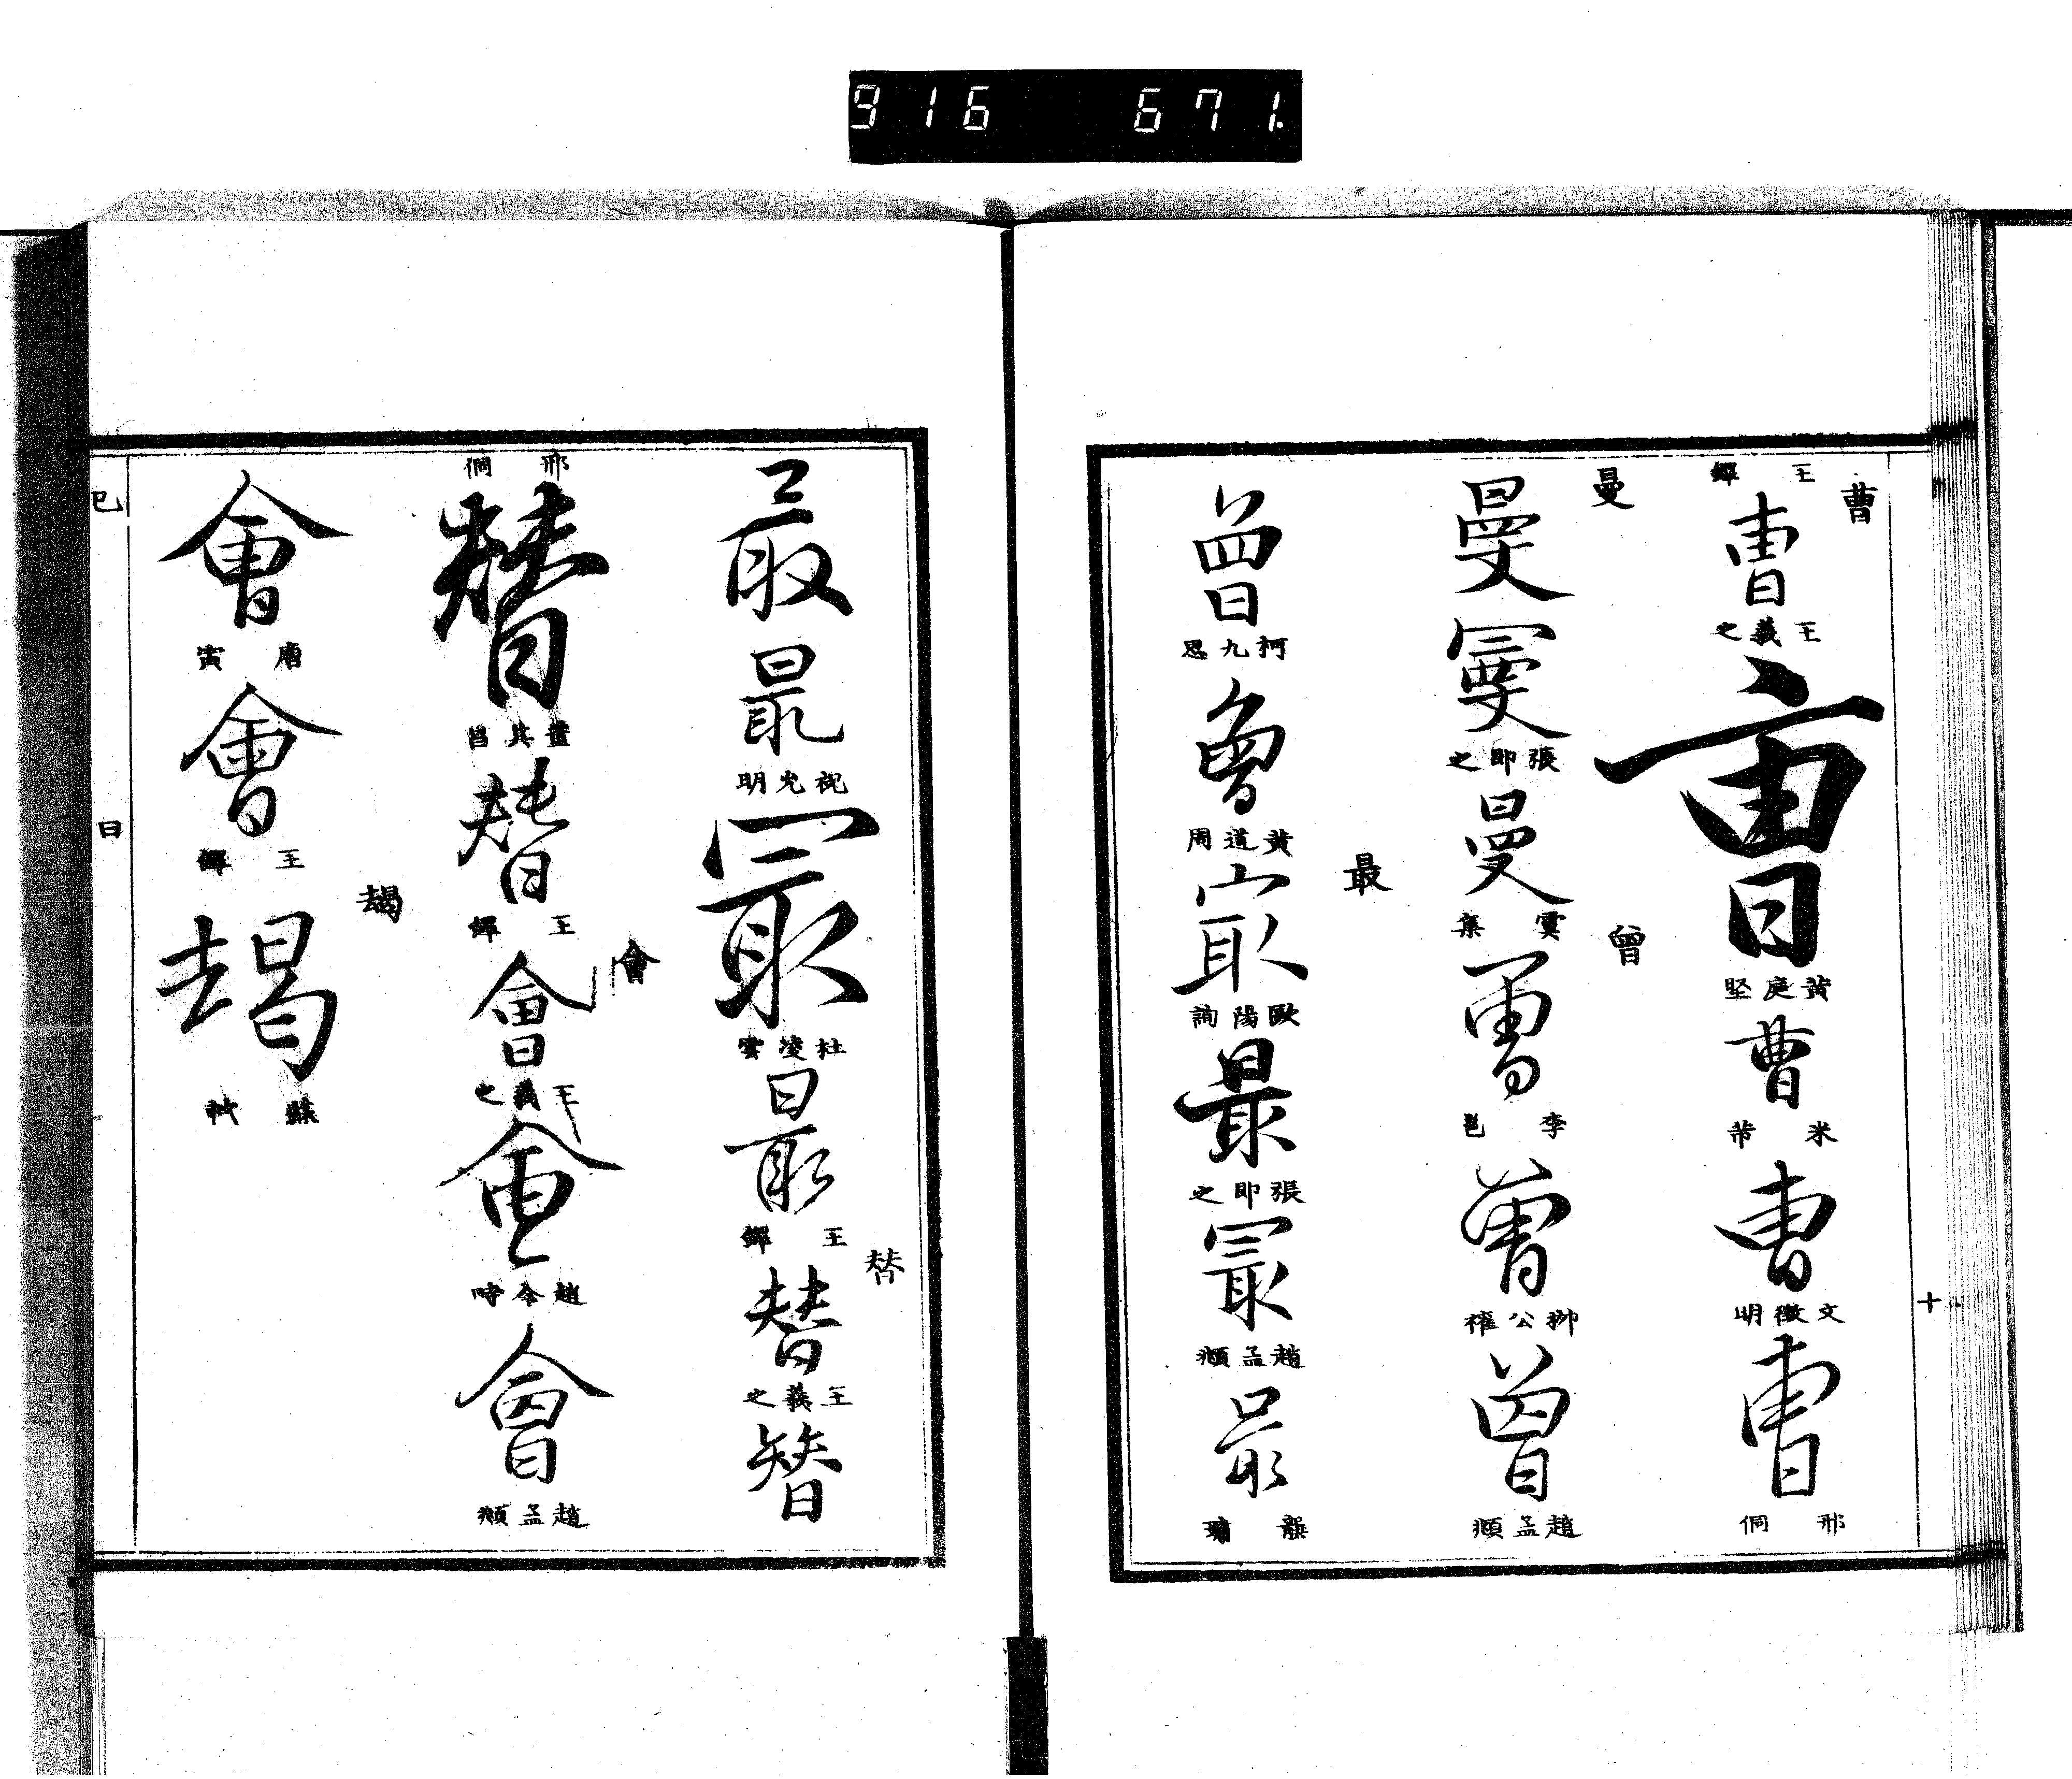 916 671.
曹
王鐸
曹
王羲之
曹
黃庭堅
曹
米芾
曹
文徵明
曹
邢侗
十
曼
曼
曼
張即之
曼
虞集
曾
曾
李邕
曾
柳公權
曾
趙孟頫
曾
柯九思
曾
黃道周
最
最
歐陽詢
最
張即之
最
趙孟頫
最
最
最
祝允明
最
杜淩雲
最
王鐸
替
替
王羲之
替
邢侗
替
董其昌
替
王鐸
會
會
王羲之
會
趙令畤
會
趙孟頫
會
唐寅
會
王鐸
朅
朅
蘇軾
巳
曰